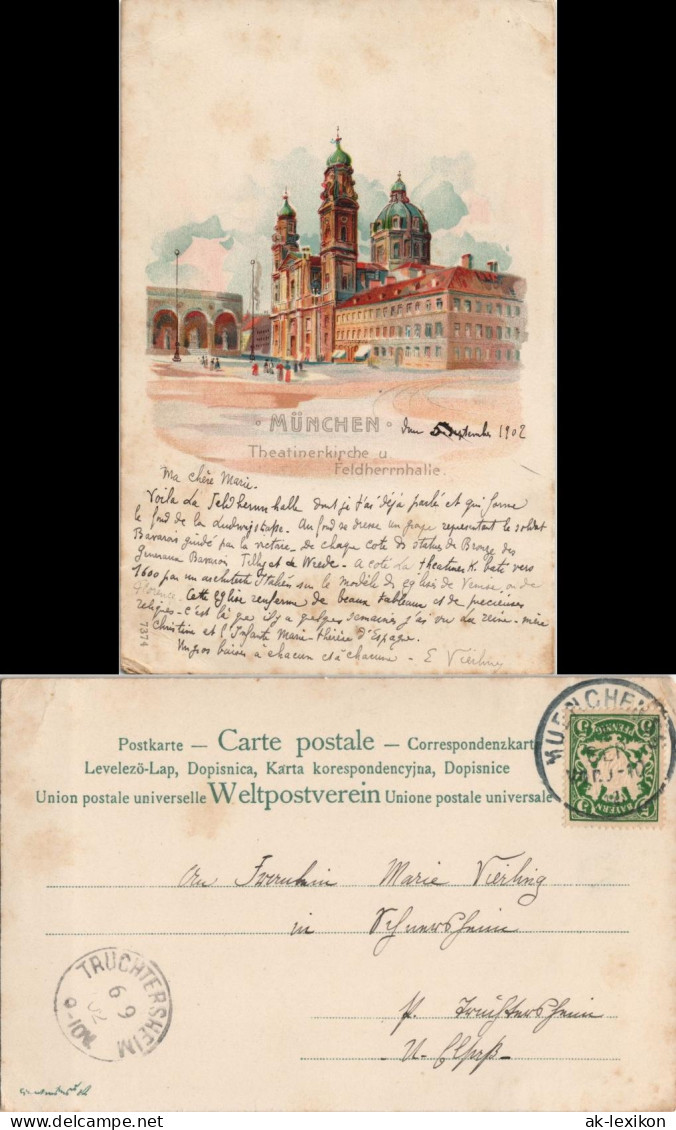 · MÜNCHEN ·
5 September 1902
Theatinerkirche u.
Feldherrnhalle.
Ma chère Marie.
Voila La Feldherrnhalle dont je t'ai déjà parlé et qui forme
le fond de la Ludwigstrasse. Au fond se dresse un page representant le soldat
Bavarois guidé par la victoire. de chaque coté des statues de Bronze des
Generaux Bavarois Tilly et de Wrede. A coté La theatiner K. batie vers
1600 par un architecte Italien sur le modèle des eglises de Venise, ou de
Florence. Cette Eglise renferme de beaux tableaux et de precieuses
reliques. C'est là que il y a quelques semaines j'ai vu la reine-mère
Christine et l'Infante Marie-thérèse d'Espagne.
Un gros baiser à chacun et à chacune. E Vierling
7374
Postkarte — Carte postale — Correspondenzkarte
Levelezö-Lap, Dopisnica, Karta korespondencyjna, Dopisnice
Union postale universelle Weltpostverein Unione postale universale
MUENCHEN
BAYERN
5 PFENNIG
An Fraeulein Marie Vierling
in Schnersheim
p. Truchtersheim
U. Elsaß
TRUCHTERSHEIM
6 9
02
9-10N
ak-lexikon